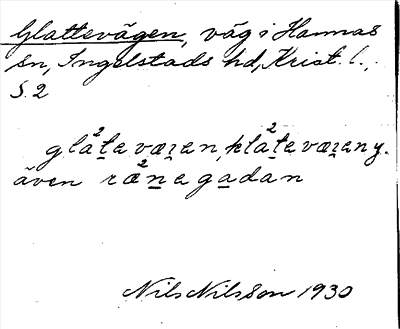 Glattevägen, väg i Hannas
sn, Ingelstads hd, Krist. l.,
S. 2
gla²t̲e væɪ̯en, kla²t̲e væɪ̯en y.
även ræ²n̲e ga̲dan
Nils Nilsson 1930